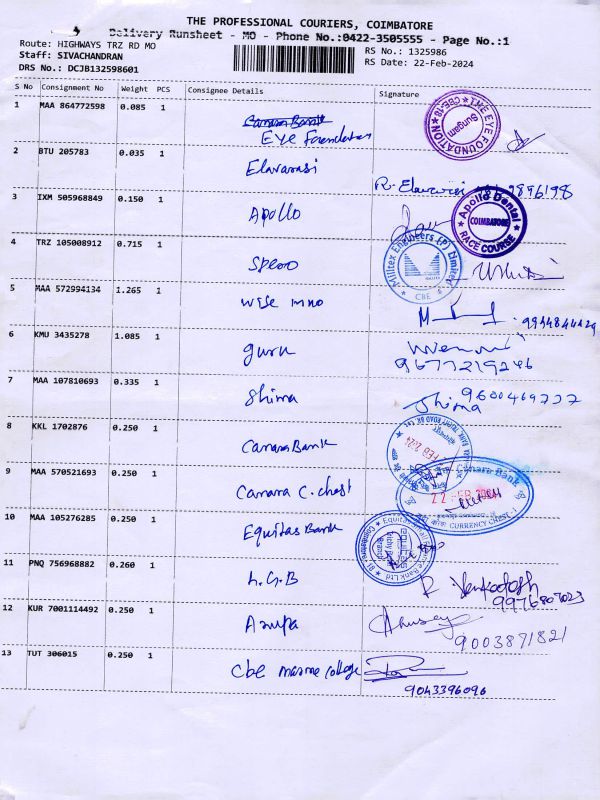 THE PROFESSIONAL COURIERS, COIMBATORE
Delivery Runsheet - MO - Phone No.:0422-3505555 - Page No.:1
Route: HIGHWAYS TRZ RD MO
Staff: SIVACHANDRAN
DRS No.: DCJB132598601
RS No.: 1325986
RS Date: 22-Feb-2024
S No Consignment No Weight PCS Consignee Details Signature
1 MAA 864772598 0.085 1 Canara Bank
Eye Foundation
THE EYE FOUNDATION Sungam CBE-18
2 BTU 205783 0.035 1 Elavarasi
3 IXM 505968849 0.150 1 Apollo
Apollo Dental COIMBATORE RACE COURSE
4 TRZ 105008912 0.715 1
Engineers (P) Limited CBE
5 MAA 572994134 1.265 1 Wise mno
6 KMU 3435278 1.085 1 guru
9677219246
7 MAA 107810693 0.335 1 Shima Shima 9600469737
8 KKL 1702876 0.250 1 Canara Bank
9 MAA 570521693 0.250 1 Canara C. chest
Canara Bank
22 FEB
CURRENCY CHEST-1
10 MAA 105276285 0.250 1 Equitas Bank
Equitas Small Finance Bank Ltd
11 PNQ 756968882 0.260 1 L.G.B R. Venkatesh
9976807023
12 KUR 7001114492 0.250 1
9003871821
13 TUT 306015 0.250 1 Cbe marine college
9043396096